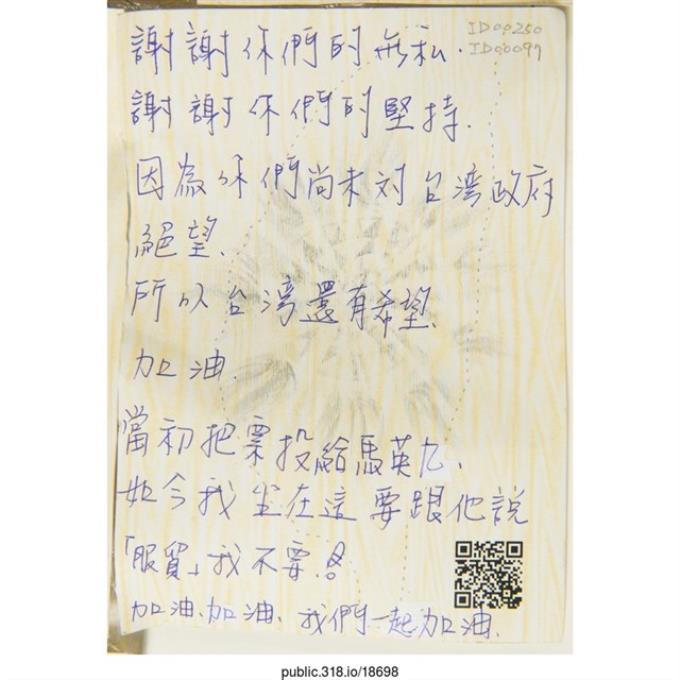 謝謝你們的無私.
ID00250
ID00097
謝謝你們的堅持.
因為你們尚未对台湾政府
絕望、
所以台湾還有希望.
加油.
當初把票投給馬英九、
如今我坐在這要跟他說
「服貿」我不要!
加油、加油、我們一起加油.
public.318.io/18698